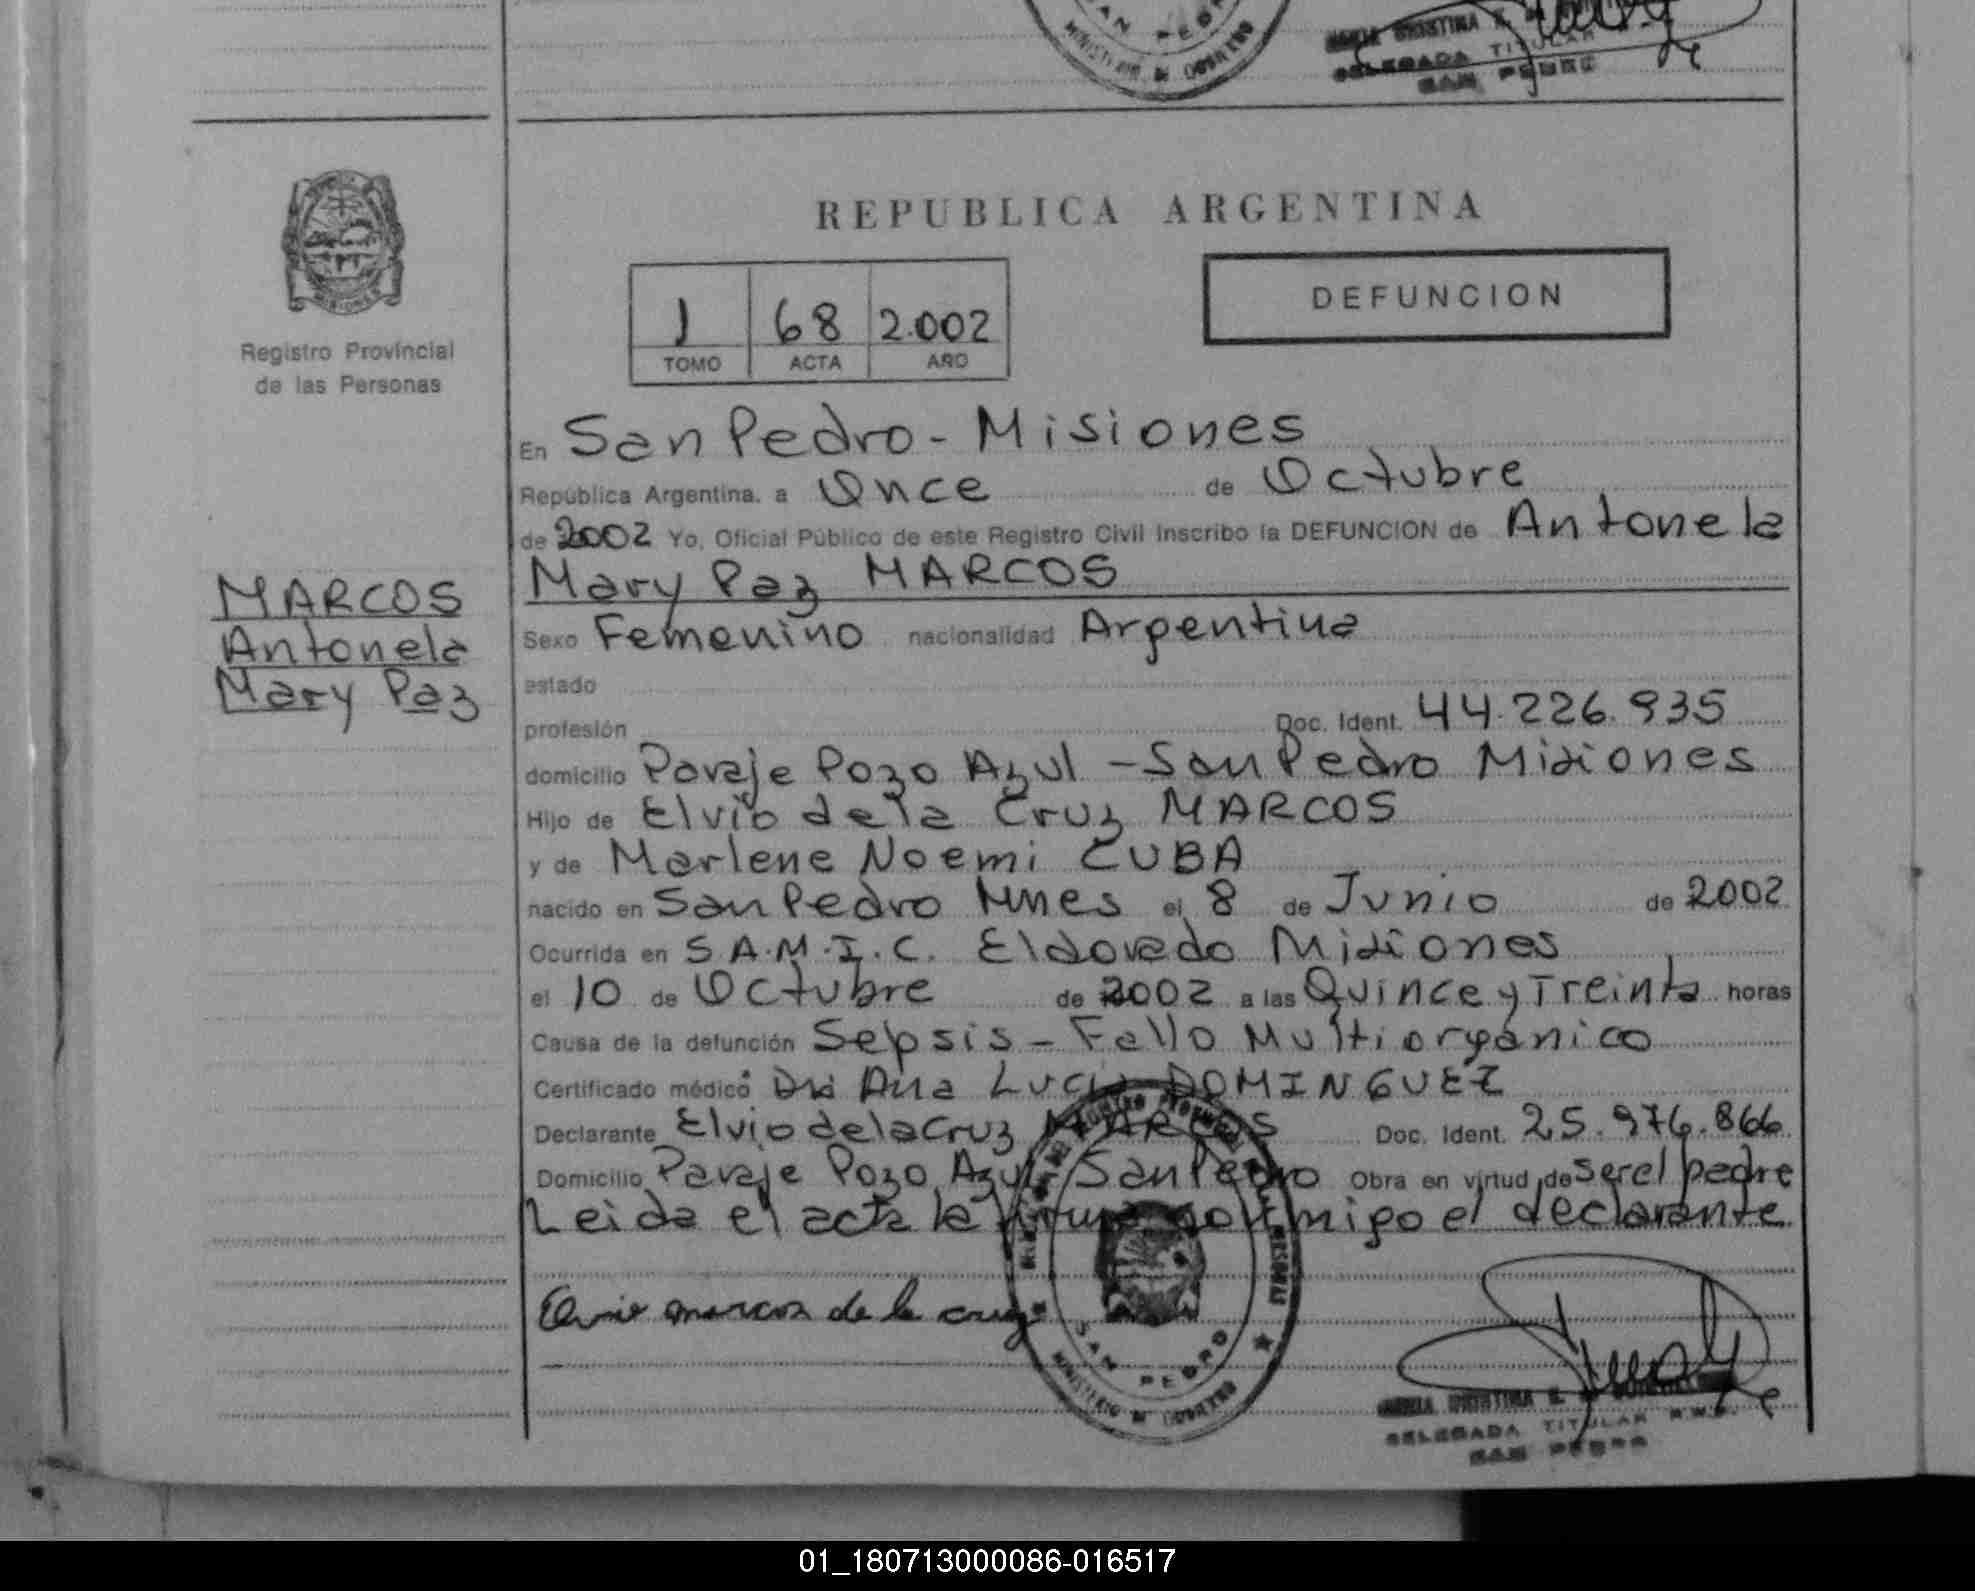 SAN PEDRO
MINISTERIO DE GOBIERNO
TITULAR
DELEGADA
SAN PEDRO
REPUBLICA ARGENTINA
MISIONES
Registro Provincial
de las Personas
1 68 2.002
TOMO ACTA AÑO
DEFUNCION
En San Pedro - Misiones
República Argentina, a Once de Octubre
de 2002 Yo, Oficial Público de este Registro Civil Inscribo la DEFUNCION de Antonela
Mary Paz MARCOS
MARCOS
Antonela
Mary Paz
Sexo Femenino nacionalidad Argentina
estado
profesión Doc. Ident. 44.226.935
domicilio Paraje Pozo Azul - San Pedro Misiones
Hijo de Elvio de la Cruz MARCOS
y de Marlene Noemi CUBA
nacido en San Pedro Mnes el 8 de Junio de 2002
Ocurrida en S.A.M.I.C. Eldorado Misiones
el 10 de Octubre de 2002 a las Quince y Treinta horas
Causa de la defunción Sepsis - Fallo Multiorgánico
Certificado médico Dra Ana Lucia DOMINGUEZ
Declarante Elvio de la Cruz MARCOS Doc. Ident. 25.976.866
Domicilio Paraje Pozo Azul - San Pedro Obra en virtud de ser el padre
Leida el acta la firma conmigo el declarante
Elvio marcos de la cruz
SAN PEDRO
MINISTERIO DE GOBIERNO
DELEGADA TITULAR
SAN PEDRO
01_180713000086-016517